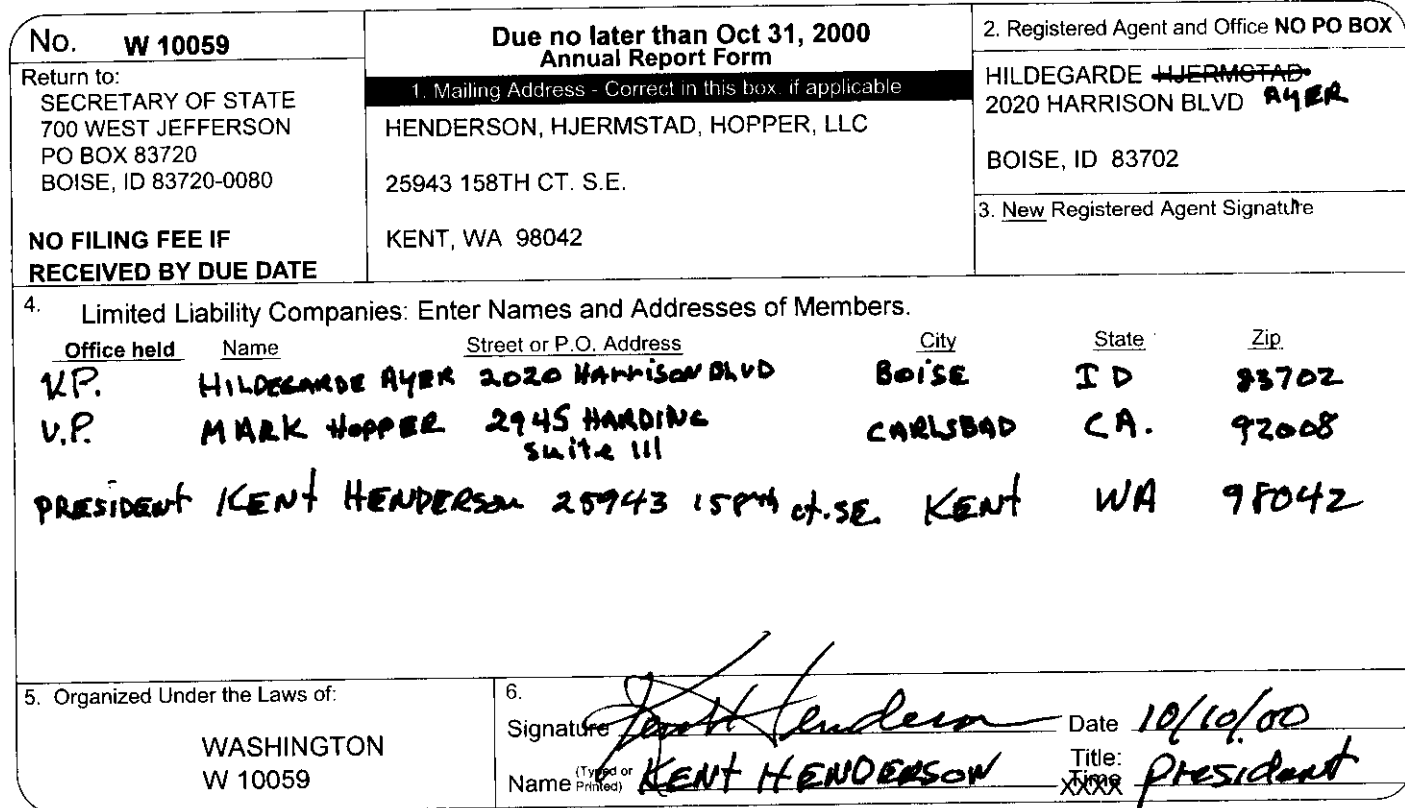 No. W 10059
Return to:
SECRETARY OF STATE
700 WEST JEFFERSON
PO BOX 83720
BOISE, ID 83720-0080
NO FILING FEE IF
RECEIVED BY DUE DATE
Due no later than Oct 31, 2000
Annual Report Form
1. Mailing Address - Correct in this box, if applicable
HENDERSON, HJERMSTAD, HOPPER, LLC
25943 158TH CT. S.E.
KENT, WA 98042
2. Registered Agent and Office NO PO BOX
HILDEGARDE HJERMSTAD
2020 HARRISON BLVD AYER
BOISE, ID 83702
3. New Registered Agent Signature
4. Limited Liability Companies: Enter Names and Addresses of Members.
Office held Name Street or P.O. Address City State Zip
V.P. HILDEGARDE AYER 2020 HARRISON BLVD BOISE ID 83702
V.P. MARK HOPPER 2945 HARDING CARLSBAD CA. 92008
Suite 111
PRESIDENT KENT HENDERSON 25943 158th ct. SE. KENT WA 98042
5. Organized Under the Laws of:
WASHINGTON
W 10059
6.
Signature Kent Henderson Date 10/10/00
Title:
Name (Typed or Printed) KENT HENDERSON Time President